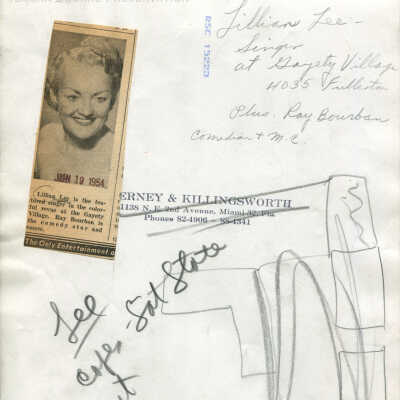 RSC 15223
Lillian Lee -
Singer
at Gayety Village
4035 Fullerton
Plus. Ray Bourban
Comedian + M.C.
JAN 19 1954
Lillian Lee is the fea-
tured singer in the color-
ful revue at the Gayety
Village. Ray Bourbon is
the comedy star and
The Only Entertainment
ERNEY & KILLINGSWORTH
1138 N. E. 2nd Avenue, Miami 32, Fla.
Phones 82-4906 — 88-4341
Lee
Sat Store